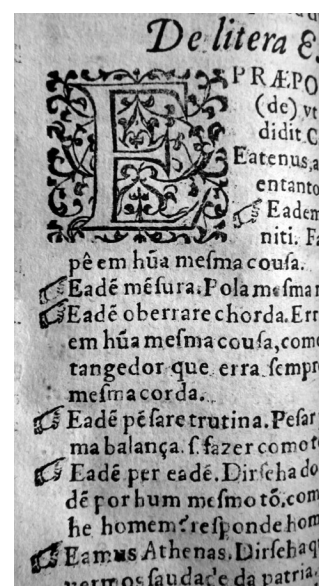 De litera E.
E PRÆPO
(de) vt
didit C
Eatenus, a
entanto
☞ Eadem
niti. Fa
pê em hũa meſma couſa.
☞ Eadē mēſura. Pola meſma
☞ Eadē oberrare chorda. Err
em hũa meſma couſa, como
tangedor que erra ſempre
meſma corda.
☞ Eadē pēſare trutina. Peſar
ma balança. ſ. fazer como t
☞ Eadē per eadē. Dirſeha do
dē por hum meſmo tõ, com
he homem? reſponde hom
☞ Eamus Athenas. Dirſeha q
vermos ſaudade da patria.